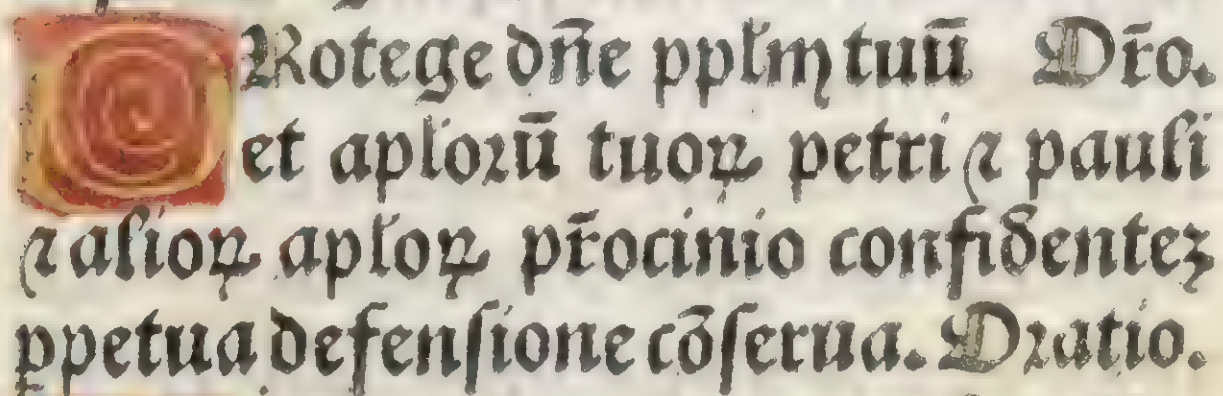 PRotege dn̄e ppl̄m tuū Or̄o.
et apl̄oꝛū tuoꝝ petri ⁊ pauli
⁊ alioꝝ apl̄oꝝ pr̄ocinio confidenteʒ
ꝑpetua defenſione cōſerua. Oꝛatio.